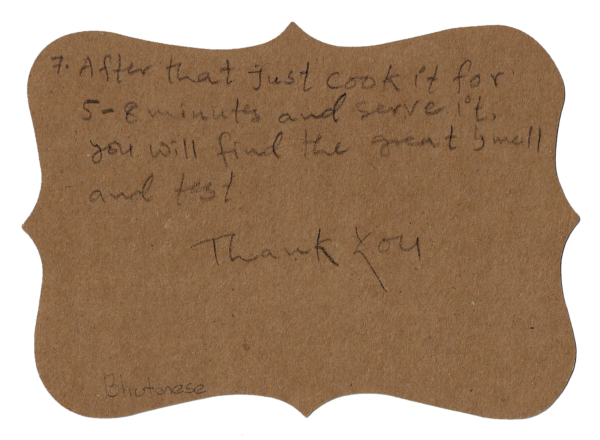 7. After that just cook it for
5-8 minutes and serve it.
you will find the great smell
and test
Thank You
Bhutonese